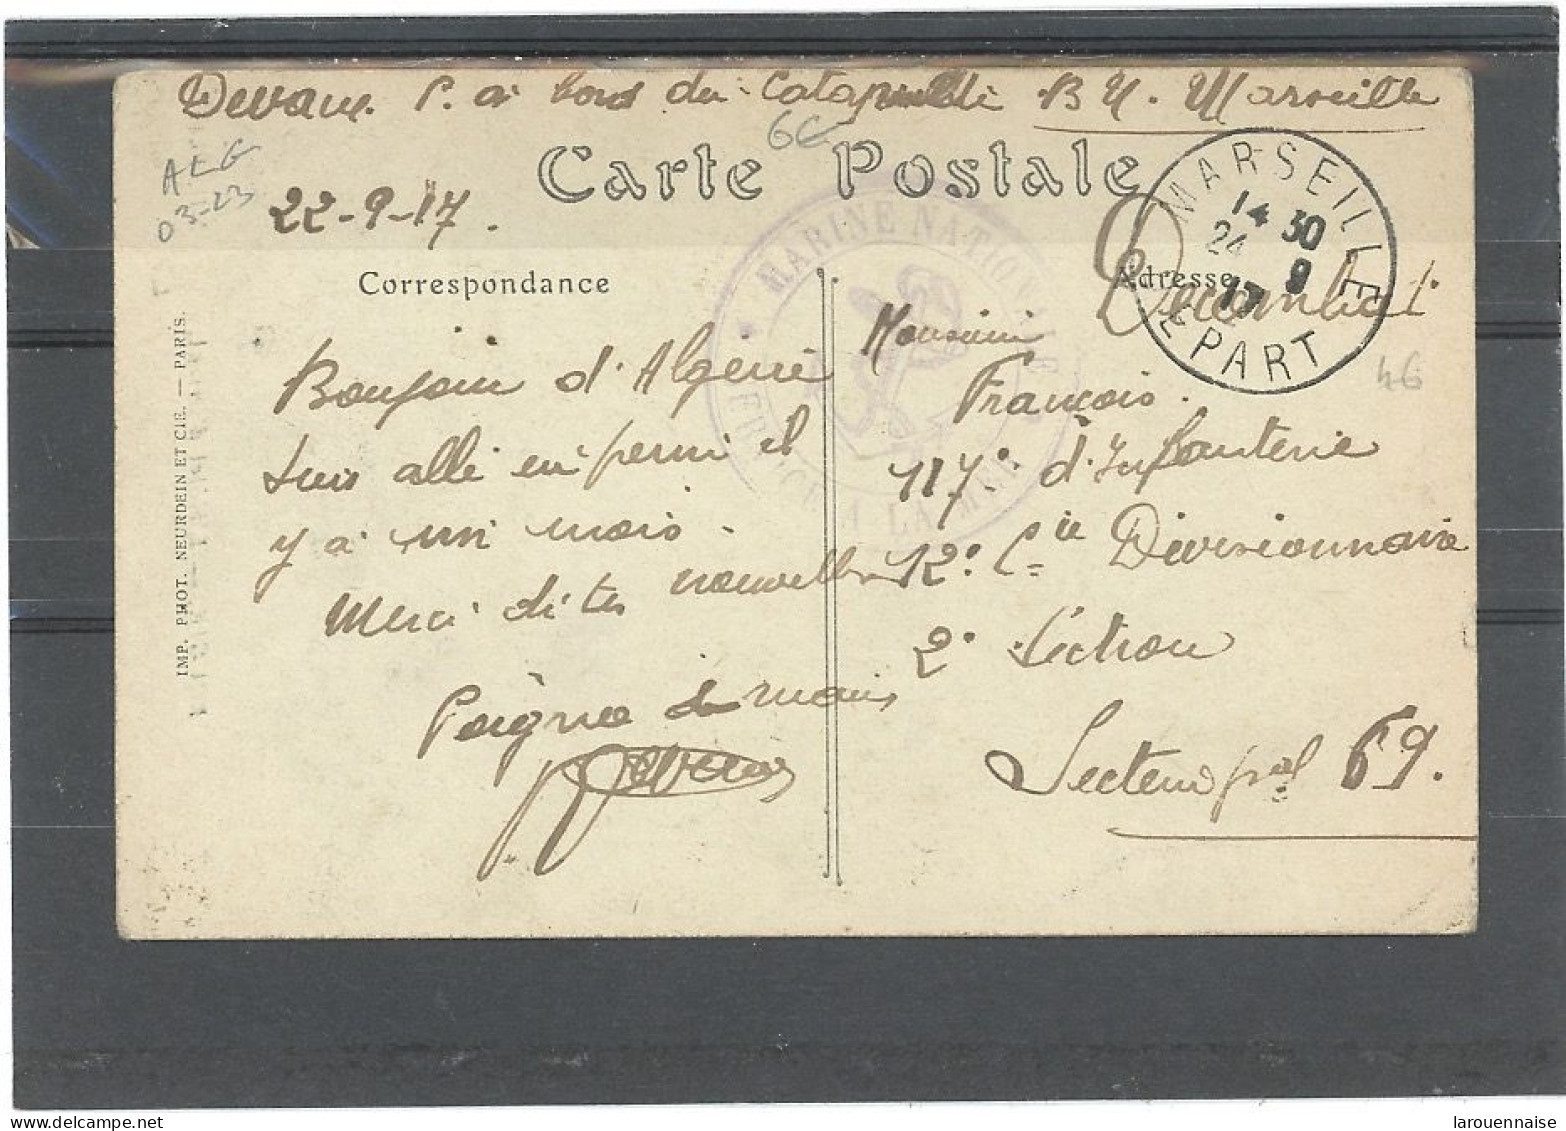 Devaux P. à bord du Catapulte B N. Marseille
6€
Carte Postale
ALG
03-23
22-9-17.
MARSEILLE
14 30
24 9
17
DEPART
MARINE NATIONALE
SERVICE A LA MER
Correspondance
Adresse
Bonjour d'Algérie
Suis allé en permi il
y a un mois.
Merci di tes nouvelles
Poignée de mains
Devaux
Monsieur
François.
46
117e d'Infanterie
12e Cie Divisionnaire
2e Section
Secteur pal 69.
IMP. PHOT. NEURDEIN ET CIE. — PARIS.
larouennaise